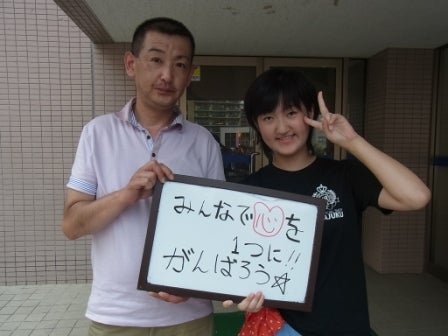 みんなで心を
1つに!!
がんばろう☆